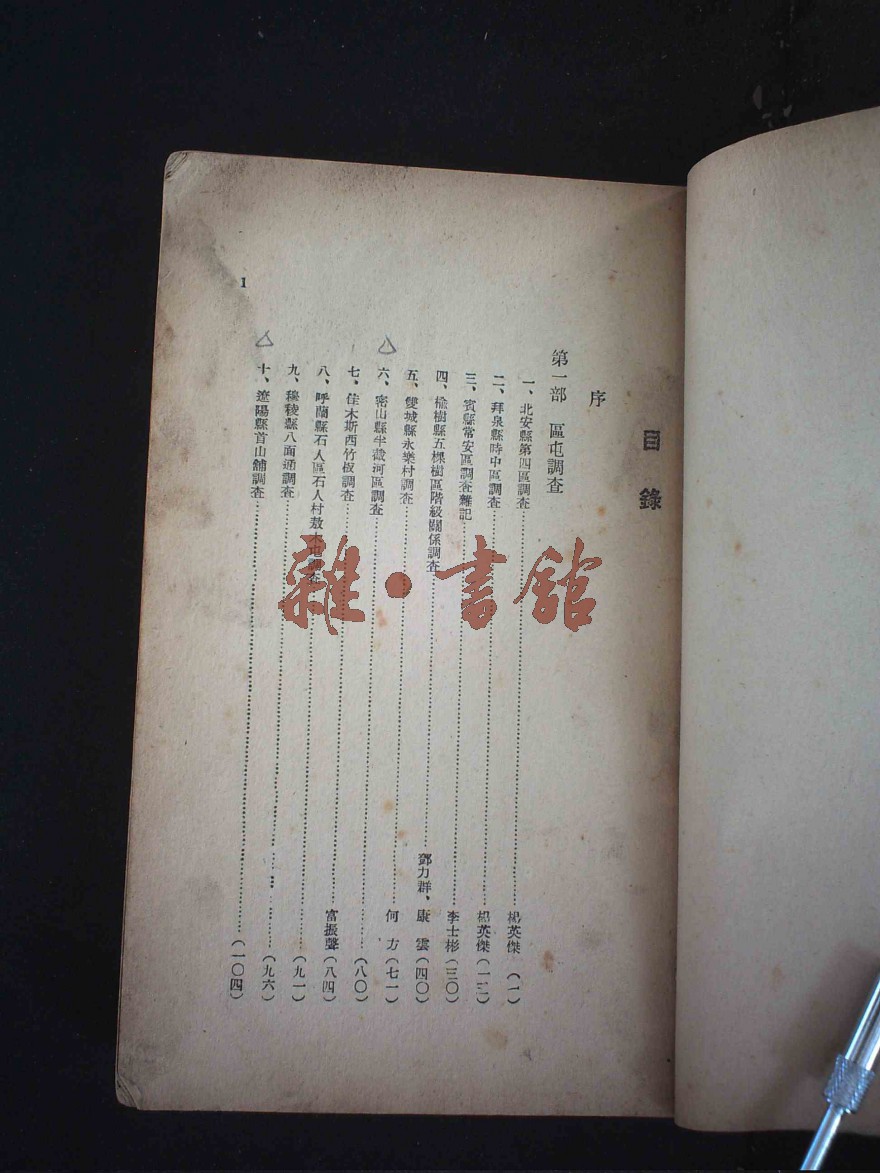 目錄
序
第一部 區屯調查
一、北安縣第四區調查……楊英傑(一)
二、拜泉縣時中區調查……楊英傑(一二)
三、賓縣常安區調查雜記……李士彬(三〇)
四、榆樹縣五棵樹區階級關係調查……鄧力群、康雲(四〇)
五、雙城縣永樂村調查……何方(七一)
六、密山縣半截河區調查……(八〇)
七、佳木斯西竹板調查……富振聲(八四)
八、呼蘭縣石人區石人村敖木屯調查……(九一)
九、穆稜縣八面通調查……(九六)
十、遼陽縣首山舖調查……(一〇四)
1
雜·書館